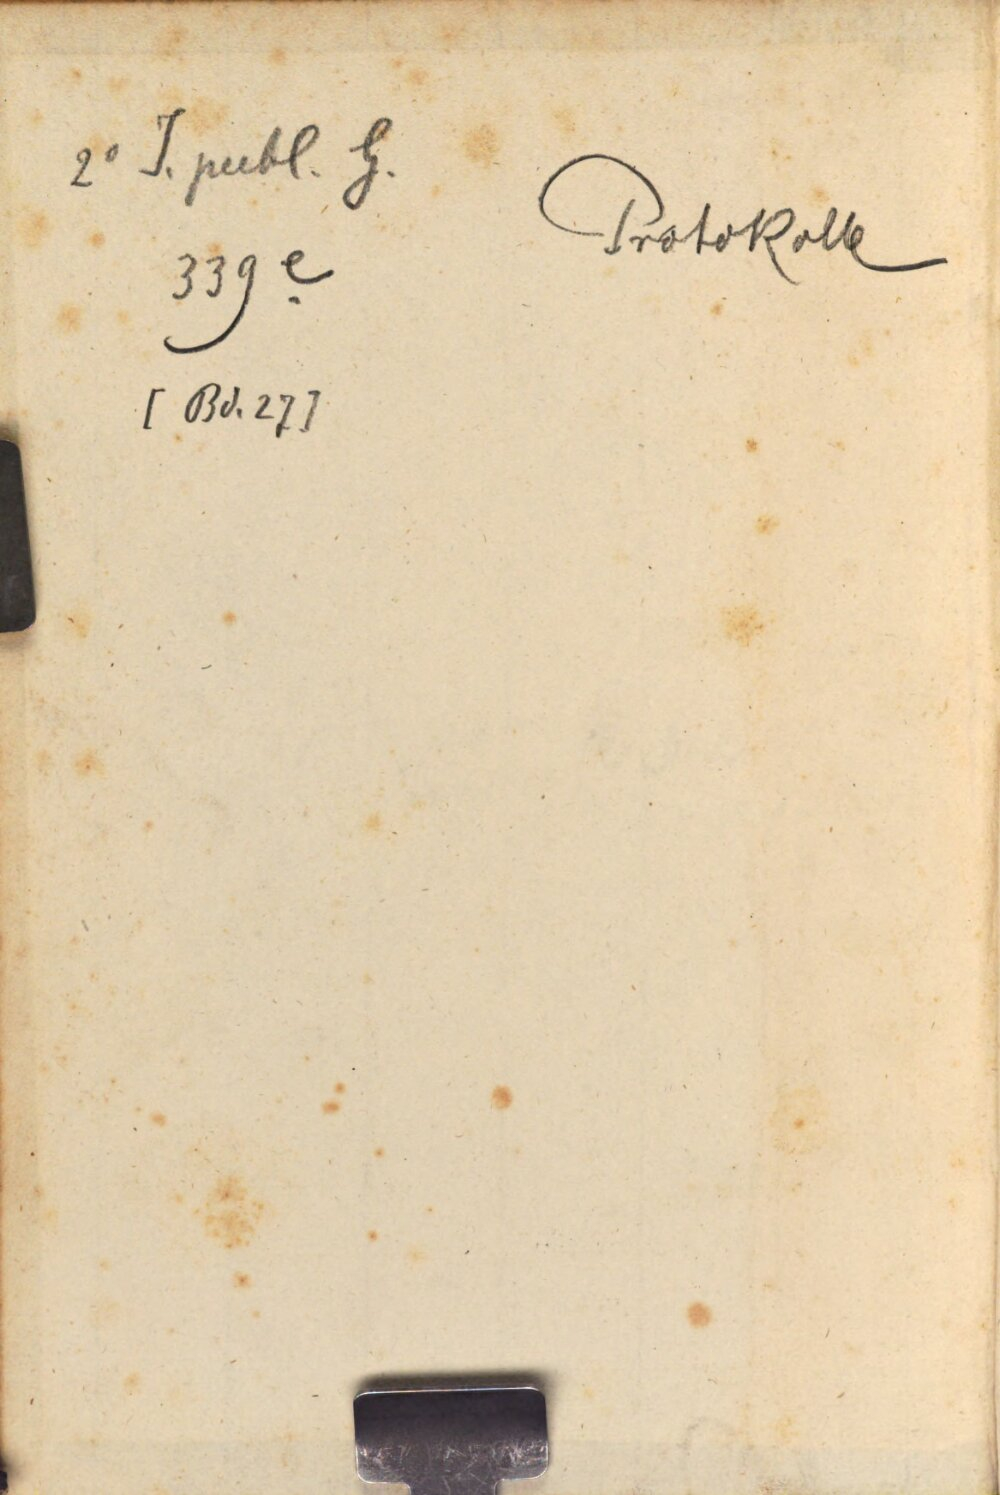 2° J. publ. G.
339 e
[Bd. 27]
Protokolle